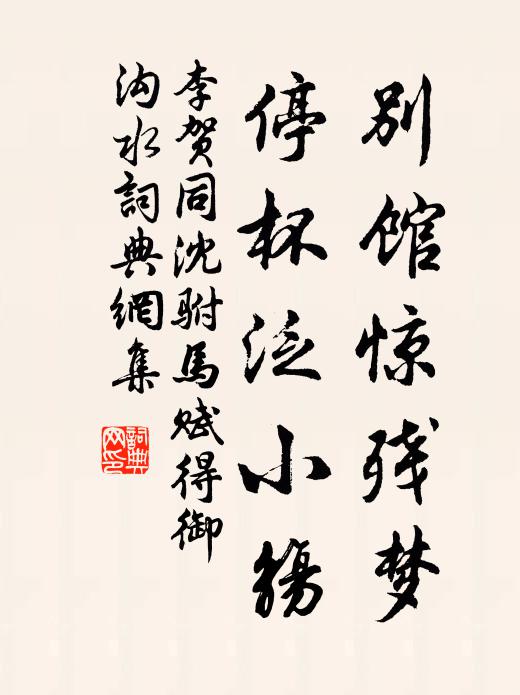 别馆惊残梦
停杯泛小觞
李贺同沈驸马赋得御
沟水詞典網集
詞典
网印